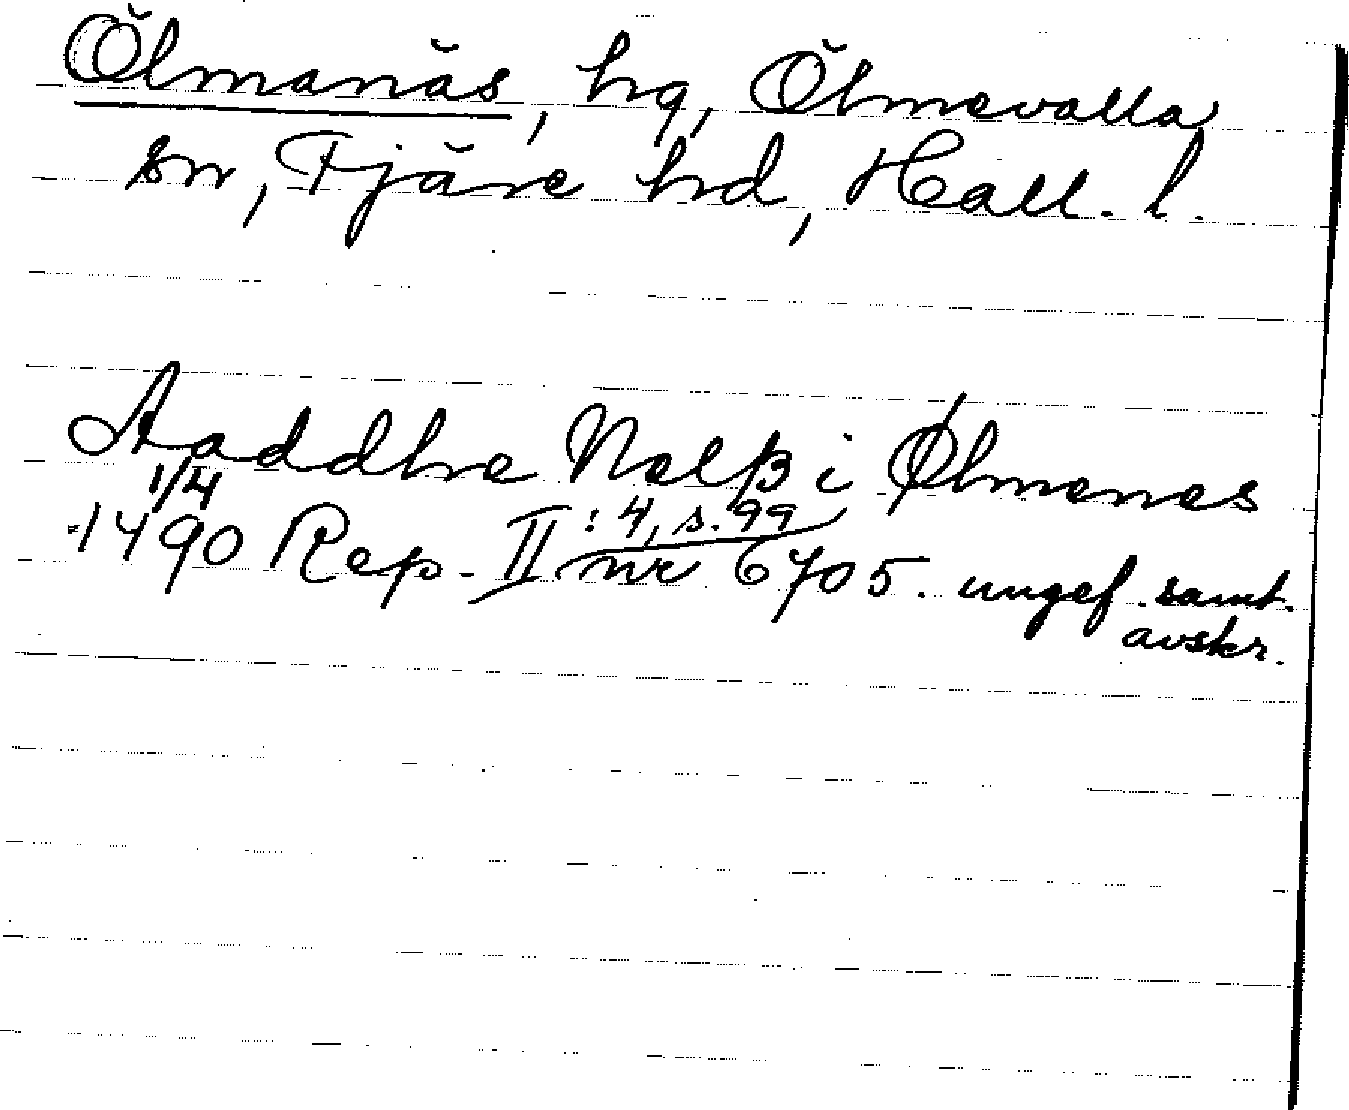 Ölmanäs, hg, Ölmevalla
sn, Fjäre hd, Hall. l.
Aaddhre Nelß i Ølmenes
1/4
1490 Rep. II : 4, s. 99
nr 6705. ungef. samt.
avskr.